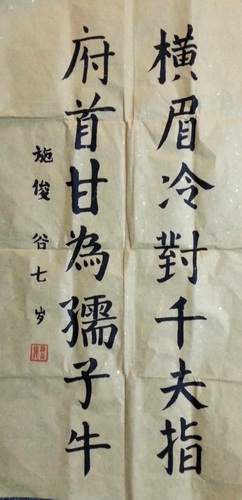 橫眉冷對千夫指
府首甘為孺子牛
施俊谷七岁